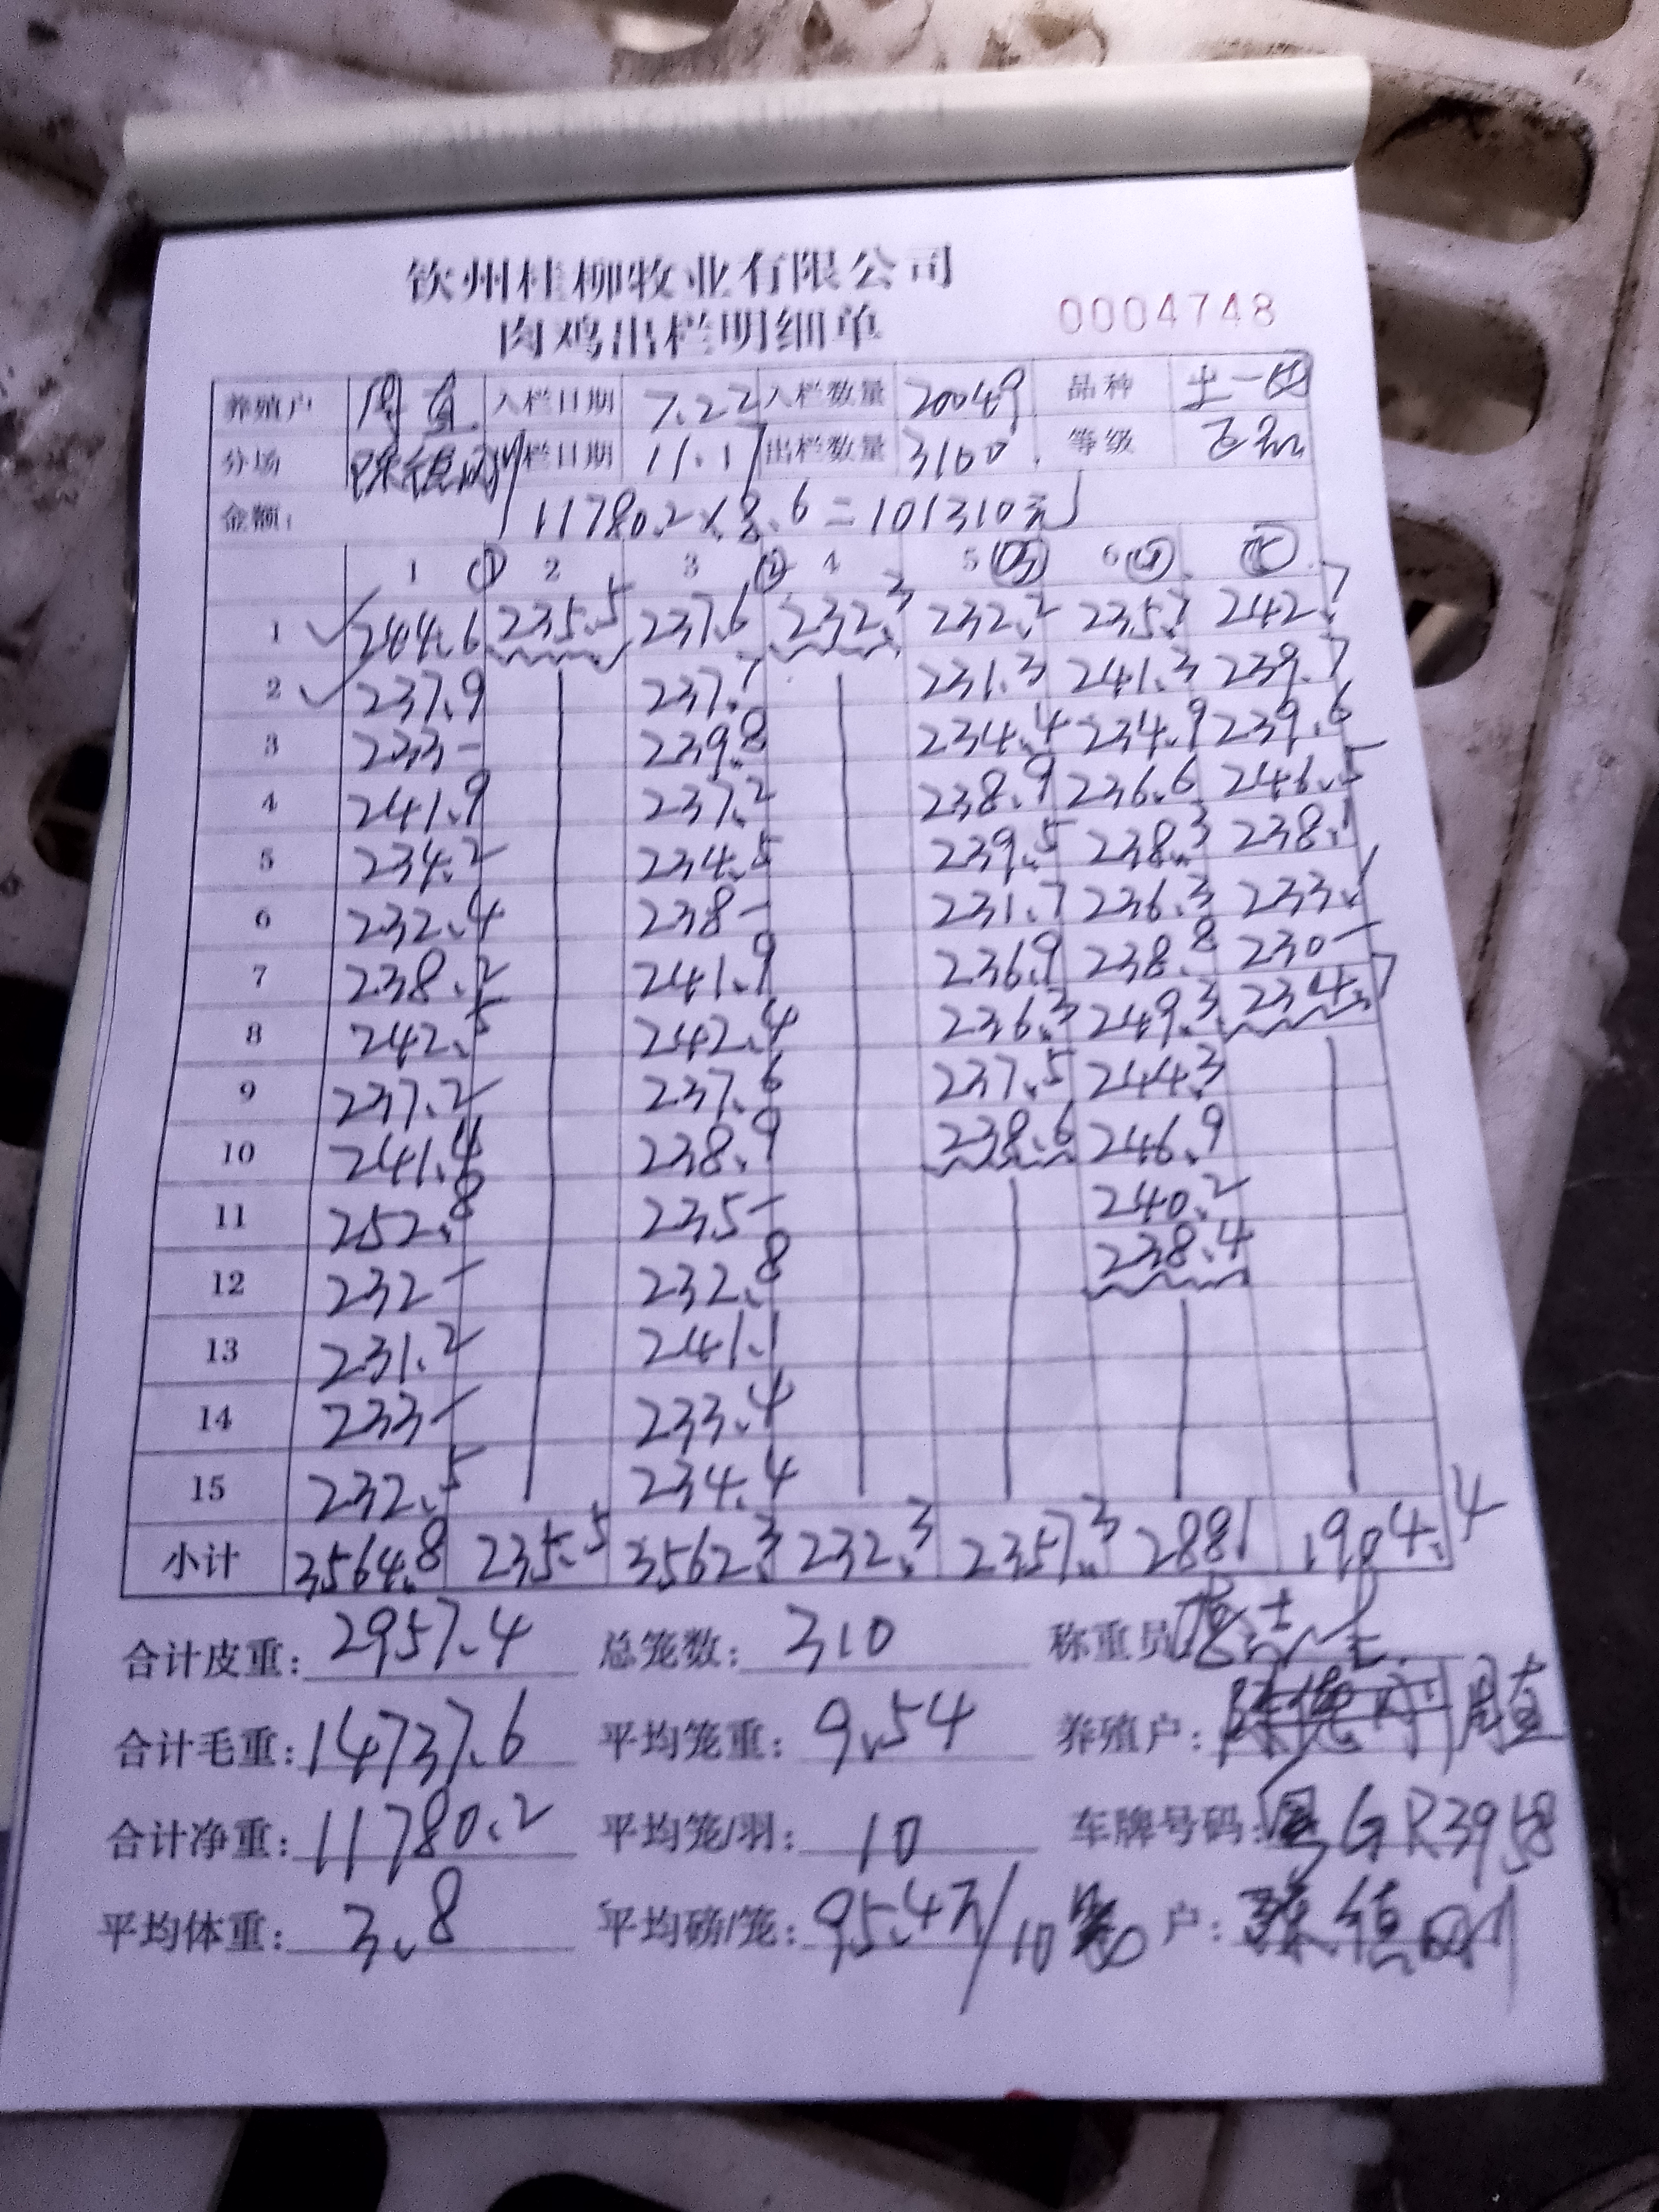 钦州桂柳牧业有限公司
肉鸡出栏明细单 0004748
养殖户 周直 入栏日期 7.22 入栏数量 20049 品种 土一
分场 出栏日期 11.17 出栏数量 3100 等级
金额: 11780.2×8.6=101310元
1 ① 2 3 ② 4 5 ③ 6 ④ ⑤
1 244.6 235.5 237.6 232.3 232.2 235.7 242.7
2 237.9 237.7 231.3 241.3 239.7
3 233- 239.8 234.4 234.9 239.6
4 241.9 237.2 238.9 236.6 246.5
5 234.2 234.5 239.5 238.3 238.1
6 232.4 238- 231.7 236.3 233.1
7 238.2 241.9 236.9 238.8 230-
8 242.5 242.4 236.3 249.3 234.7
9 237.2 237.6 237.5 244.3
10 241.4 238.9 238.6 246.9
11 252.8 235- 240.2
12 232- 232.8 238.4
13 231.2 241.1
14 233- 233.4
15 232.5 234.4
小计 3564.8 235.5 3562.3 232.3 2357.3 2881 1904.4
合计皮重: 2957.4 总笼数: 310 称重员
合计毛重: 14737.6 平均笼重: 9.54 养殖户: 周直
合计净重: 11780.2 平均笼/羽: 10 车牌号码: 粤GR3958
平均体重: 3.8 平均磅/笼: 95.4斤/10笼 户: 陈德